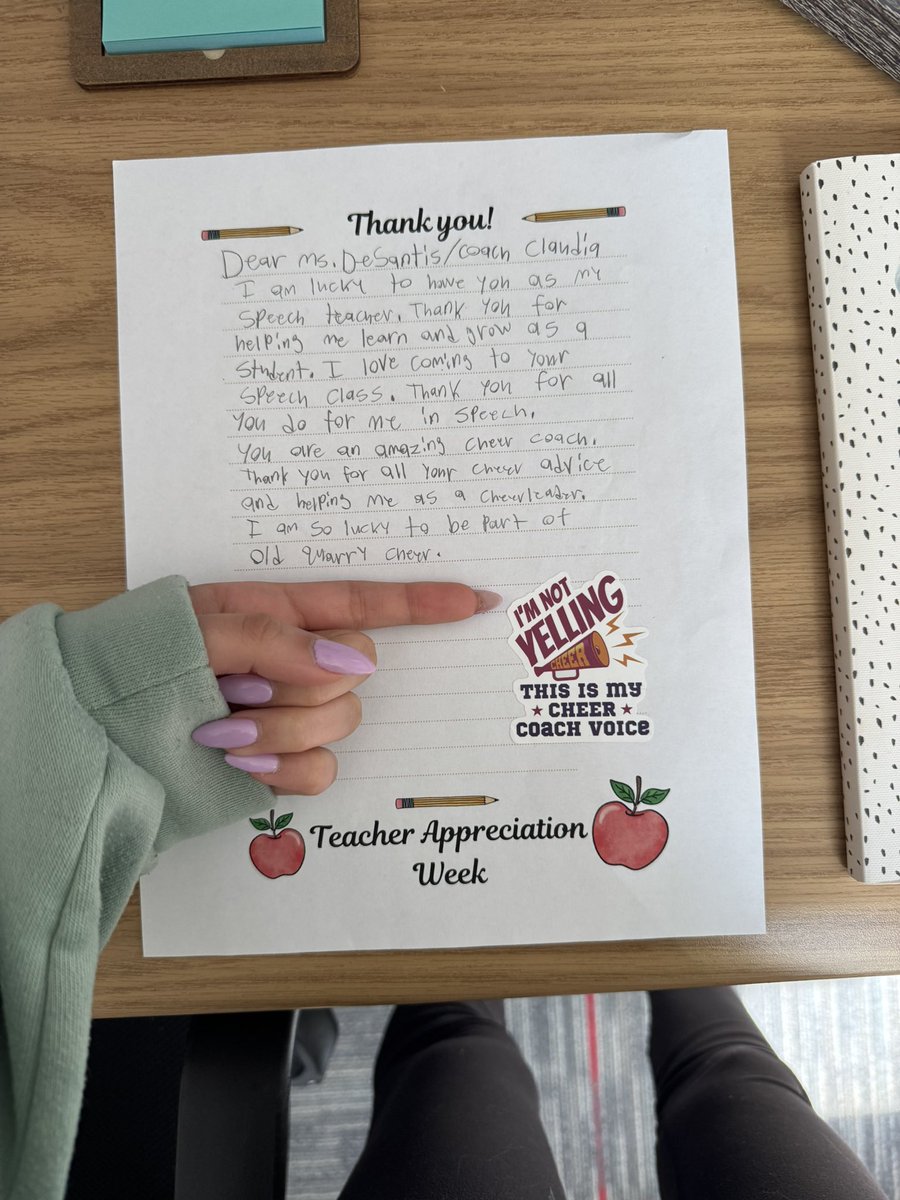 Thank you!
Dear Ms. DeSantis/Coach Claudia
I am lucky to have you as my
speech teacher. Thank you for
helping me learn and grow as a
student. I love coming to your
speech class. Thank you for all
you do for me in speech.
You are an amazing cheer coach.
Thank you for all your cheer advice
and helping me as a cheerleader.
I am so lucky to be part of
Old Quarry Cheer.
I'M NOT
YELLING
CHEER
THIS IS MY
CHEER
COACH VOICE
Teacher Appreciation
Week